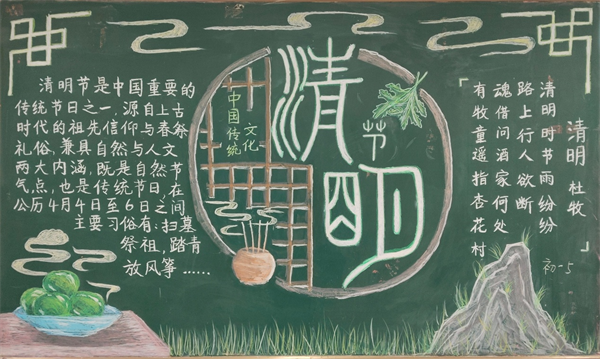 清明节是中国重要的
传统节日之一,源自上古
时代的祖先信仰与春祭
礼俗,兼具自然与人文
两大内涵,既是自然节
气点,也是传统节日,在
公历4月4日至6日之间
主要习俗有:扫墓
祭祖,踏青
放风筝……
中国传统
文化
清明
节
清明 杜牧
清明时节雨纷纷
路上行人欲断
魂借问酒家何处
有牧童遥指杏花村
初一5